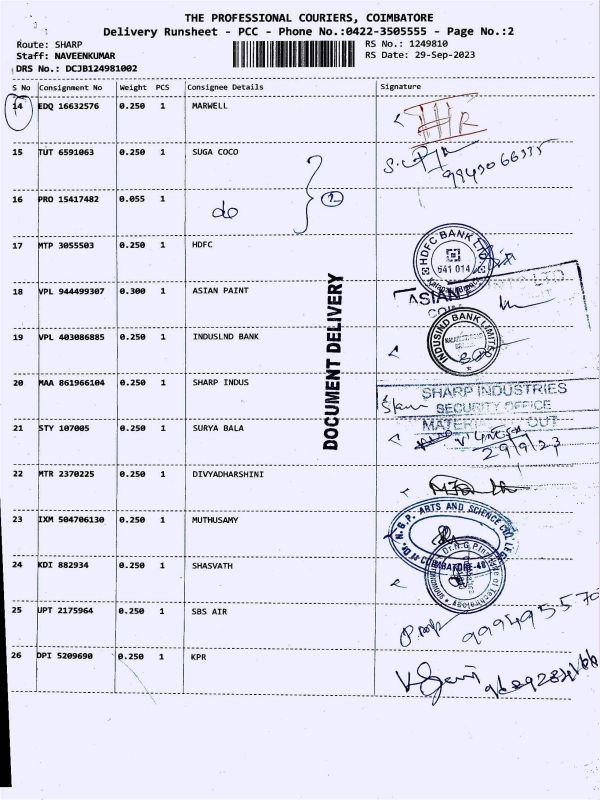 THE PROFESSIONAL COURIERS, COIMBATORE
Delivery Runsheet - PCC - Phone No.:0422-3505555 - Page No.:2
Route: SHARP
RS No.: 1249810
Staff: NAVEENKUMAR
RS Date: 29-Sep-2023
DRS No.: DCJB124981002
S No Consignment No Weight PCS Consignee Details Signature
14 EDQ 16632576 0.250 1 MARWELL
15 TUT 6591063 0.250 1 SUGA COCO
16 PRO 15417482 0.055 1 do
17 MTP 3055503 0.250 1 HDFC
HDFC BANK LTD
641 014
18 VPL 944499307 0.300 1 ASIAN PAINT
ASIAN
19 VPL 403086885 0.250 1 INDUSLND BANK
INDUSIND BANK LIMITED
DOCUMENT DELIVERY
20 MAA 861966104 0.250 1 SHARP INDUS
SHARP INDUSTRIES
SECURITY OFFICE
OUT
21 STY 107005 0.250 1 SURYA BALA
29/9/23
22 MTR 2370225 0.250 1 DIVYADHARSHINI
23 IXM 504706130 0.250 1 MUTHUSAMY
Dr. N.G.P. ARTS AND SCIENCE COLLEGE
COIMBATORE-48
24 KDI 882934 0.250 1 SHASVATH
Dr. N.G.P. Institute of Technology
25 UPT 2175964 0.250 1 SBS AIR
26 DPI 5209690 0.250 1 KPR